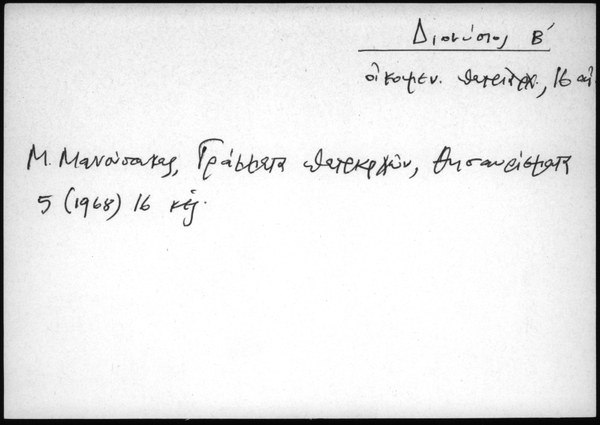 Διονύσιος Β΄
οἰκουμεν. πατριάρχ., 16 αἰ
Μ. Μανούσακας, Γράμματα πατριαρχῶν, Θησαυρίσματα
5 (1968) 16 κἑξ.